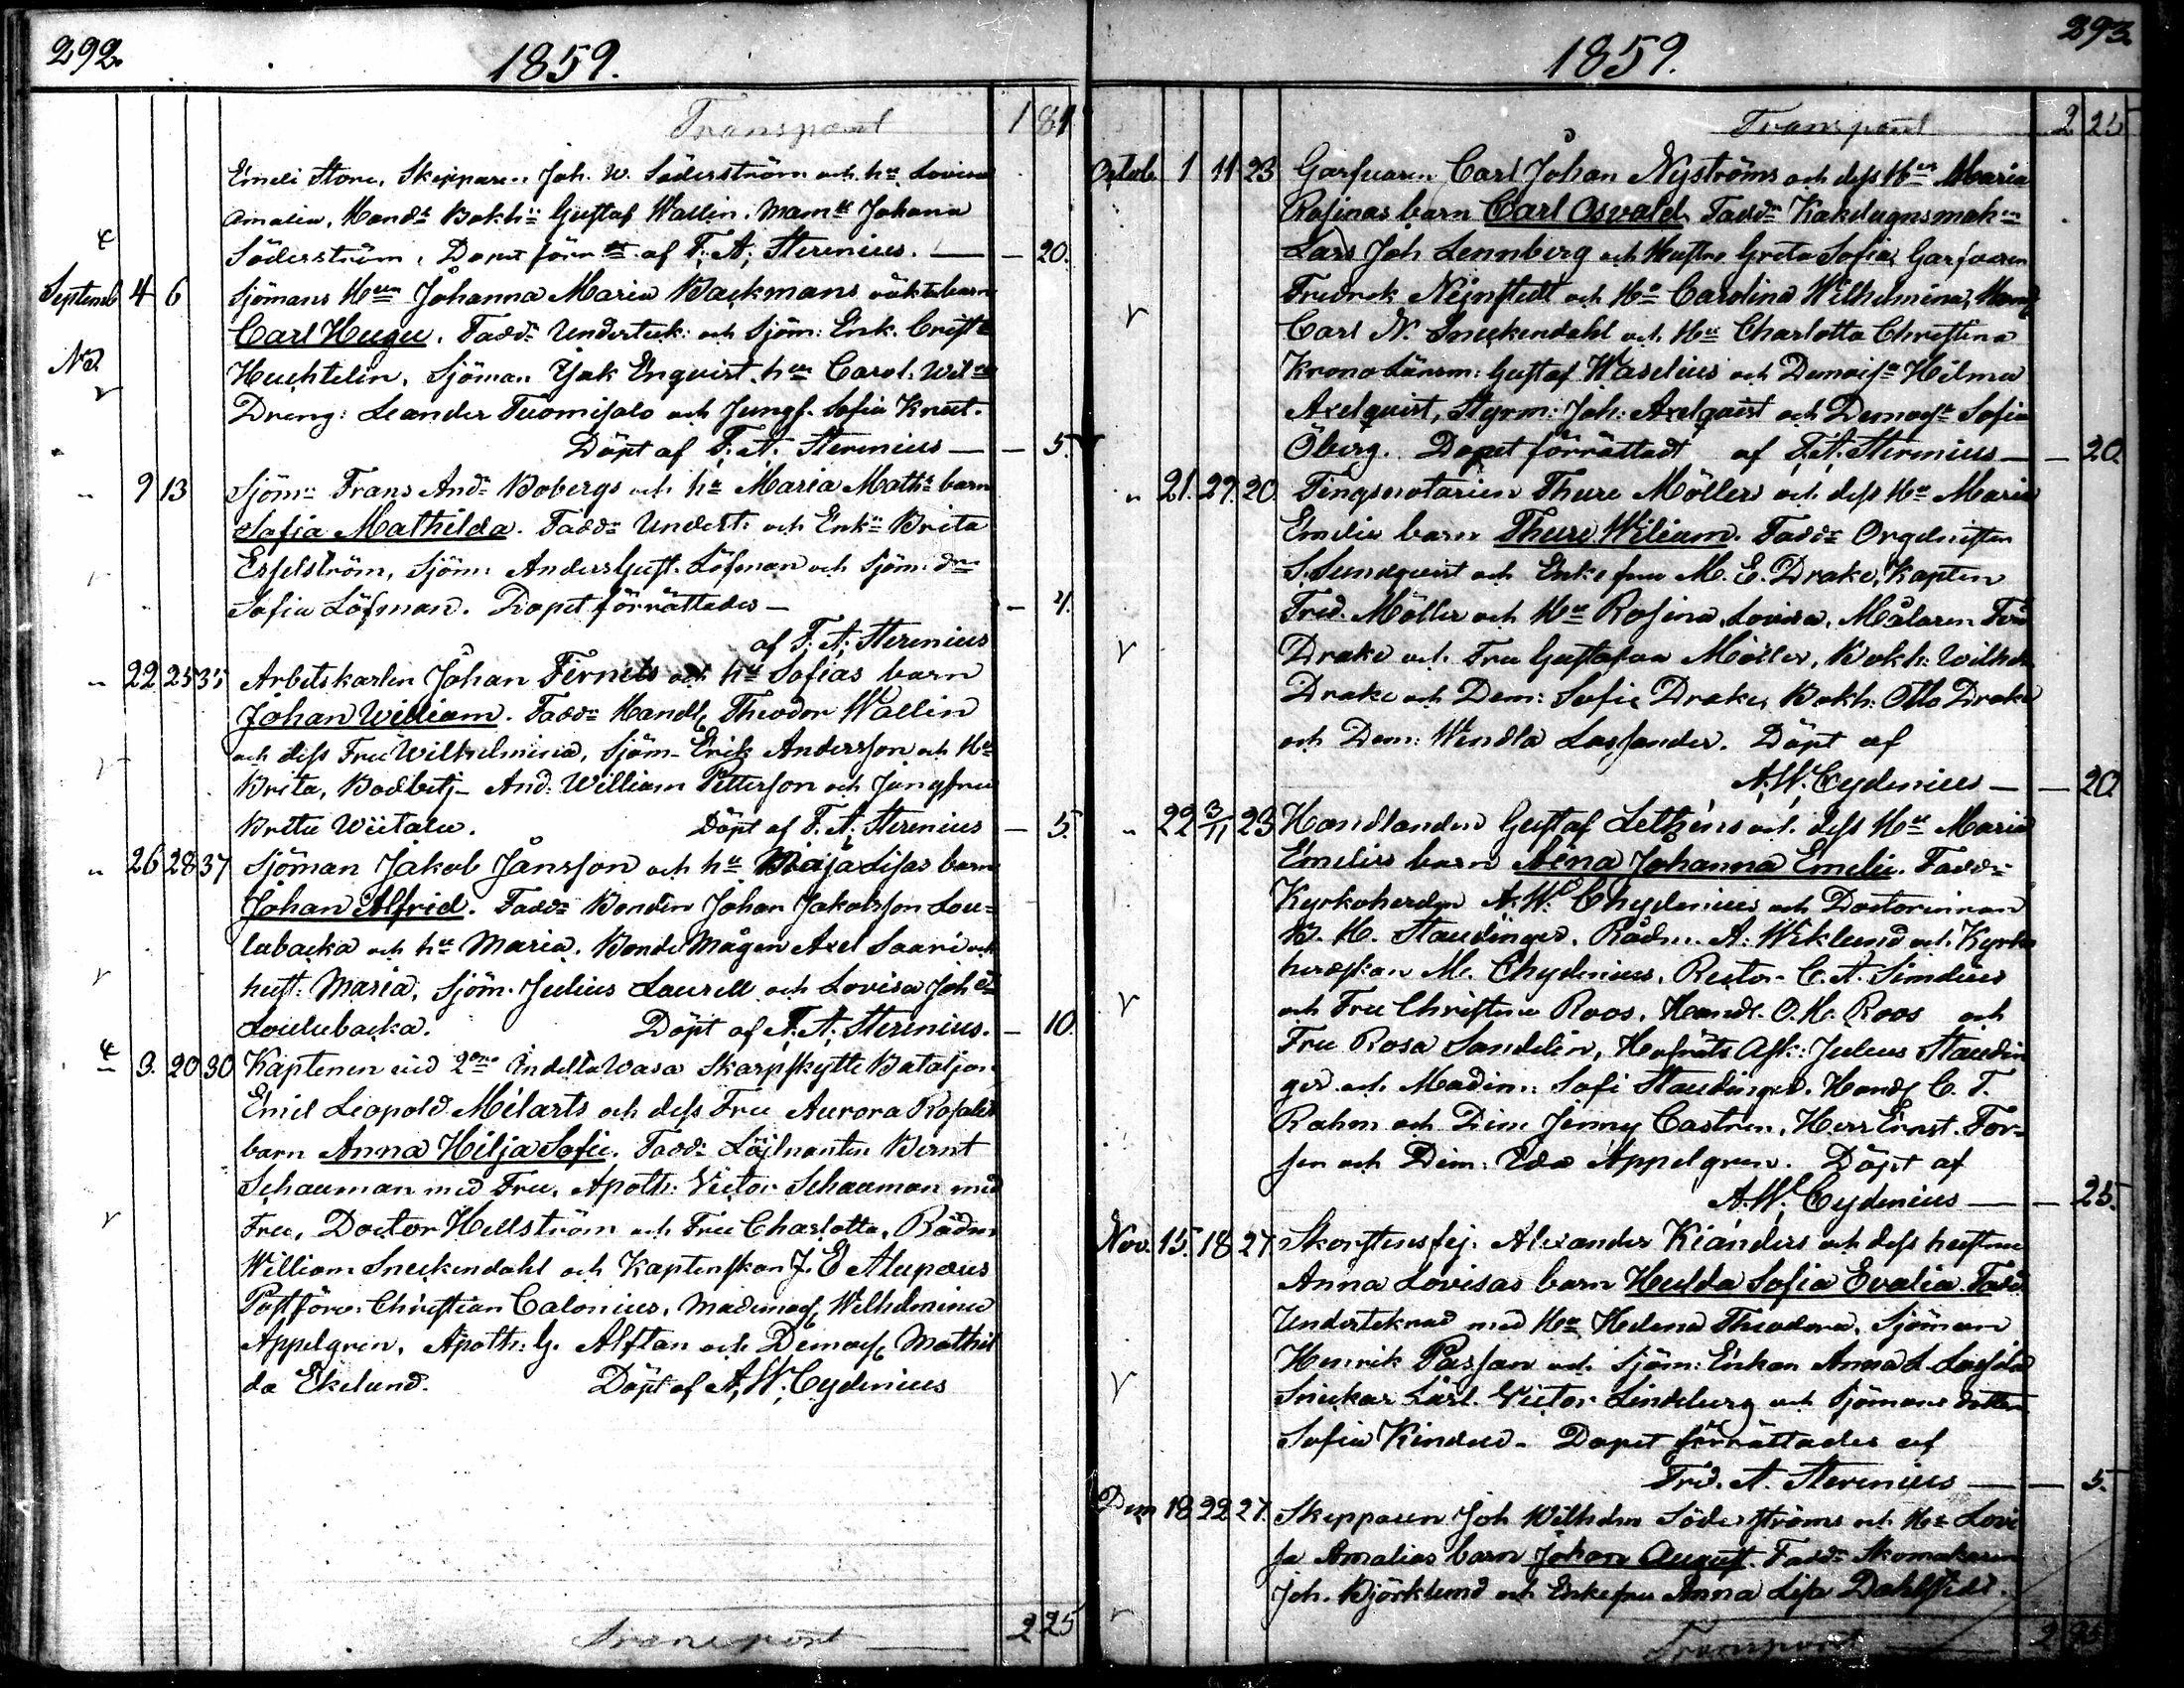 292.
1859.
Transport 1 81
Emeli Store, Skepparen Joh. W. Söderström och hu Lovisa
Amalia, Handl: Bokh: Gustaf Wallin, Mamsll Johana
Söderström, Dopet förr:des af F. A. Sterenius. — — 20.
Septemb 4 6 Sjömans Hustru Johanna Maria Backmans oäkta barn
Carl Hugu. Fadd: Underteck: och Sjöm: Enk. Crist:
No.
Huchtelin, Sjöman Isak Enqvist, hu Carol. Wil:
Dreng: Leander Tuomisalo och Jungf. Sofia Knut.
Döpt af F. A. Sterenius — — 5.
" 9 13 Sjöm: Frans And: Bobergs och hu Maria Math: barn
Sofia Mathilda. Fadd: Undert: och Enk: Brita
Esselström, Sjöm: Anders Gust. Löfman och Sjöm. dr
Sofia Löfman. Dopet förrättades — — 4.
af F. A. Sterenius
" 22 25 35 Arbetskarlen Johan Fernels och hu Sofias barn
Johan William. Fadd: Handl. Theodor Wallin
och dess Fru Wilhelmina, Sjöm. Erik Andersson och Hu
Brita, Bodbetj. And: William Petterson och Jungfru
Britu Wiitala. Döpt af F. A. Sterenius — 5.
" 26 28 37 Sjöman Jakob Jånsson och hu Maja Lisas barn
Johan Alfrid. Fadd: Bonden Johan Jakobsson Lou=
lubacka och hu Maria. Bonde Mågen Axel Saari och
hust: Maria, Sjöm. Julius Laurell och Lovisa Joh dr
Loulubacka. Döpt af F. A. Sterenius. — 10.
" 3. 20 30 Kaptenen vid 2dra Indelta Wasa Skarpskytte Bataljon
Emil Leopold Milarts och dess Fru Aurora Rosalis
barn Anna Hilja Sofie. Fadd: Löjtnanten Bernt
Schauman med Fru, Apoth: Victor Schauman med
Fru, Doctor Hellström och Fru Charlotta, Rådm.
William Sneckendahl och Kaptenskan J. E Alupæus
Postförv. Christian Calonius, Mademoß Wilhelmina
Appelgren, Apoth: G. Alftan och Demoß Mathil
da Ekelund. Döpt af A. W. Cydenius
Transport — 2 25
293.
1859.
Transport 2 25
Octob. 1 11 23 Garfvaren Carl Johan Nyströms och dess Hu Maria
Rosinas barn Carl Osvald. Fadd: Kakelugnsmak:
Lars Joh Lennberg och Hustru Greta Sofia, Garfvaren
Fredrik Nejnstedt och Hu Carolina Wilhelmina, Handl
Carl N. Sneckendahl och Hu Charlotta Christina
Krono Länsm: Gustaf Waselius och Demois: Hilma
Axelquist, Styrm: Joh: Axelquist och Demois: Sofia
Öberg. Dopet förrättadt af F. A. Sterenius — — 20.
" 21. 27. 20. Tingsnotarien Thure Möllers och dess Hu Maria
Emelia barn Thure Wiliam. Fadd: Orgelnisten
S. Sundqvist och Enkefru M. E. Drake, Kapten
Fred. Möller och Hu Rosina Lovisa, Målaren
Drake och Fru Gustafva Möller, Bokh: Wilhelm
Drake och Dem: Sofie Drake, Bokh: Otto Drake
och Dem: Wendla Lassander. Döpt af
A. W. Cydenius — — 20.
" 22 3/11 23 Handlanden Gustaf Lethéns och dess Hu Maria
Emelies barn Aina Johanna Emelie. Fadd:
Kyrkoherden A. W. Chydenius och Doctorinnan
B. H. Staudinger, Rådm. A. Wiklund och Kyrko
herdskan M. Chydenius, Rector C. A. Simelius
och Fru Christina Roos, Handl. O. H. Roos och
Fru Rosa Sandelin, Hofräts Ask: Julius Staudin
ger och Madem: Sofi Staudinger. Handl C. F.
Rahm och Dem Jenny Castren, Herr Ernst For=
sen och Dem: Eda Appelgren. Döpt af
A. W. Cydenius — — 25.
Nov. 15. 18 27. Skorstensfej. Alexander Kianders och dess hustru
Anna Lovisas barn Hulda Sofia Evalia. Fadd.
Undertecknad med Hu Helena Theodora, Sjöman
Henrik Passan och Sjöm: Enkan Anna L.
Snickar Lärl. Victor Lindeberg och Sjömans dotter
Sofia Kindere. Dopet förrättades af
Frid. A. Sterenius — — 5.
Dem 18 22 27. Skepparen Joh Wilhelm Söderströms och Hu Lovi
sa Amalias barn Johan August. Fadd: Skomakaren
Joh. Björklund och Enkefru Anna Lisa Dahlstedt.
Transport